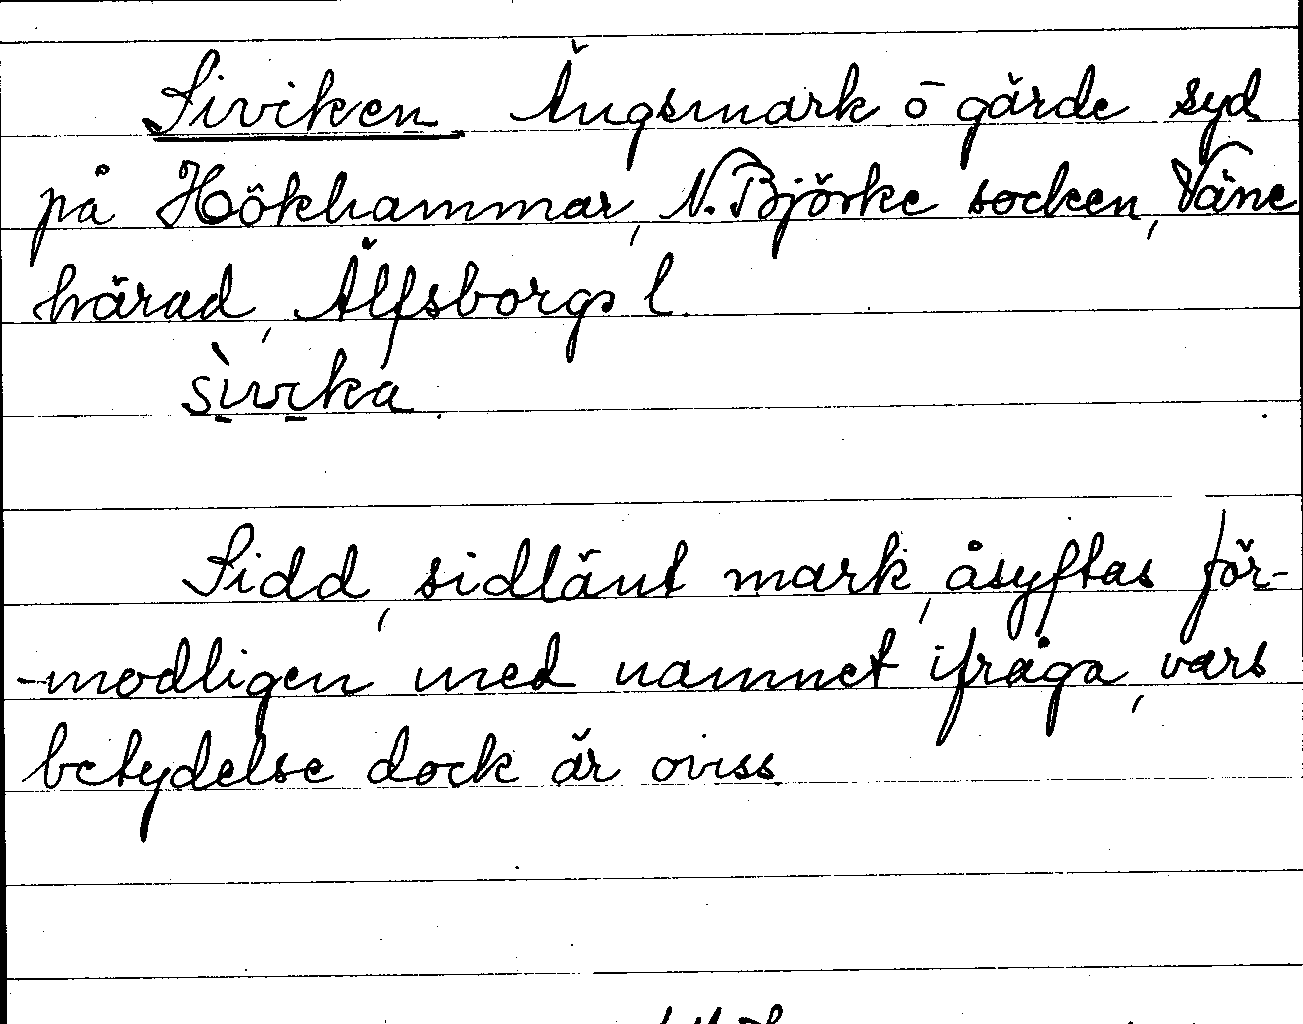 Siviken Ängsmark o gärde syd
på Hökhammar, N. Björke socken, Väne
härad, Älfsborgs l.
sìvika.
Sidd, sidlänt mark, åsyftas för-
-modligen med namnet ifråga, vars
betydelse dock är oviss.